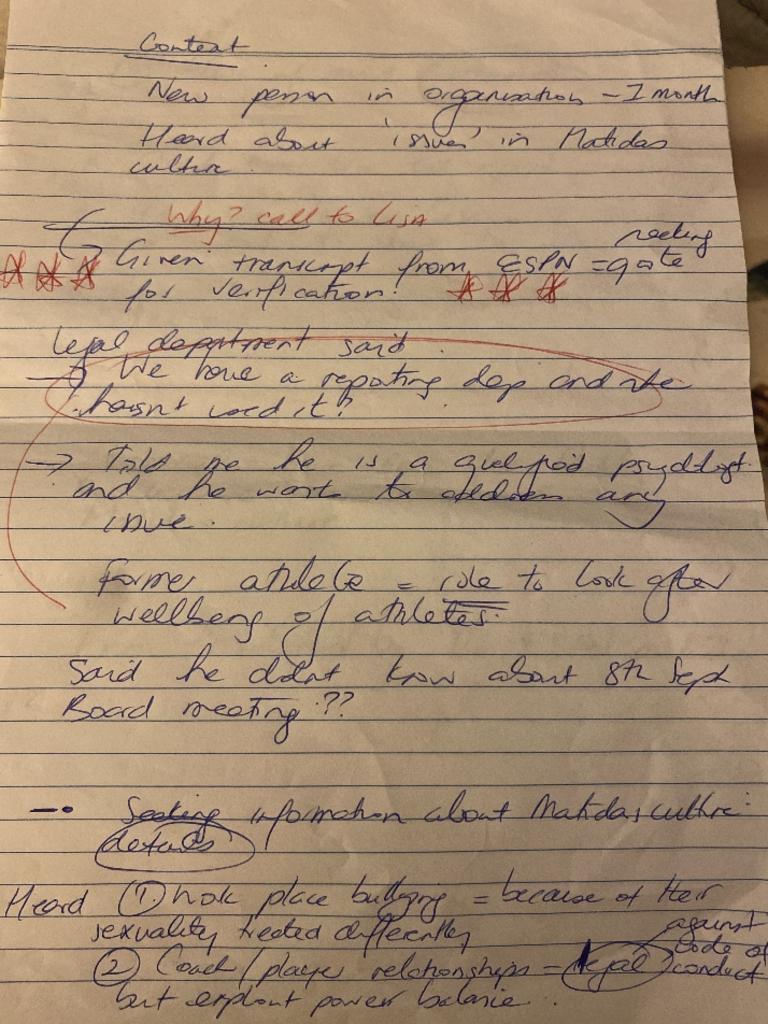 Context
New person in organisation - 1 month
Heard about 'issues' in Matildas
culture.
Why? call to LISA
→ Given transcript from ESPN = seeking quote
for verification.
Legal department said.
→ We have a reporting dep and she
hasn't used it?
→ Told me he is a qualified psychologist
and he wants to address any
issue.
Former athlete = role to look after
wellbeing of athletes.
Said he didnt know about 8th Sept
Board meeting ??
Seeking information about Matildas culture:
details
Heard ① work place bullying = because of their
sexuality treated differently
② Coach / player relationships = legal against code of conduct
but exploit power balance...